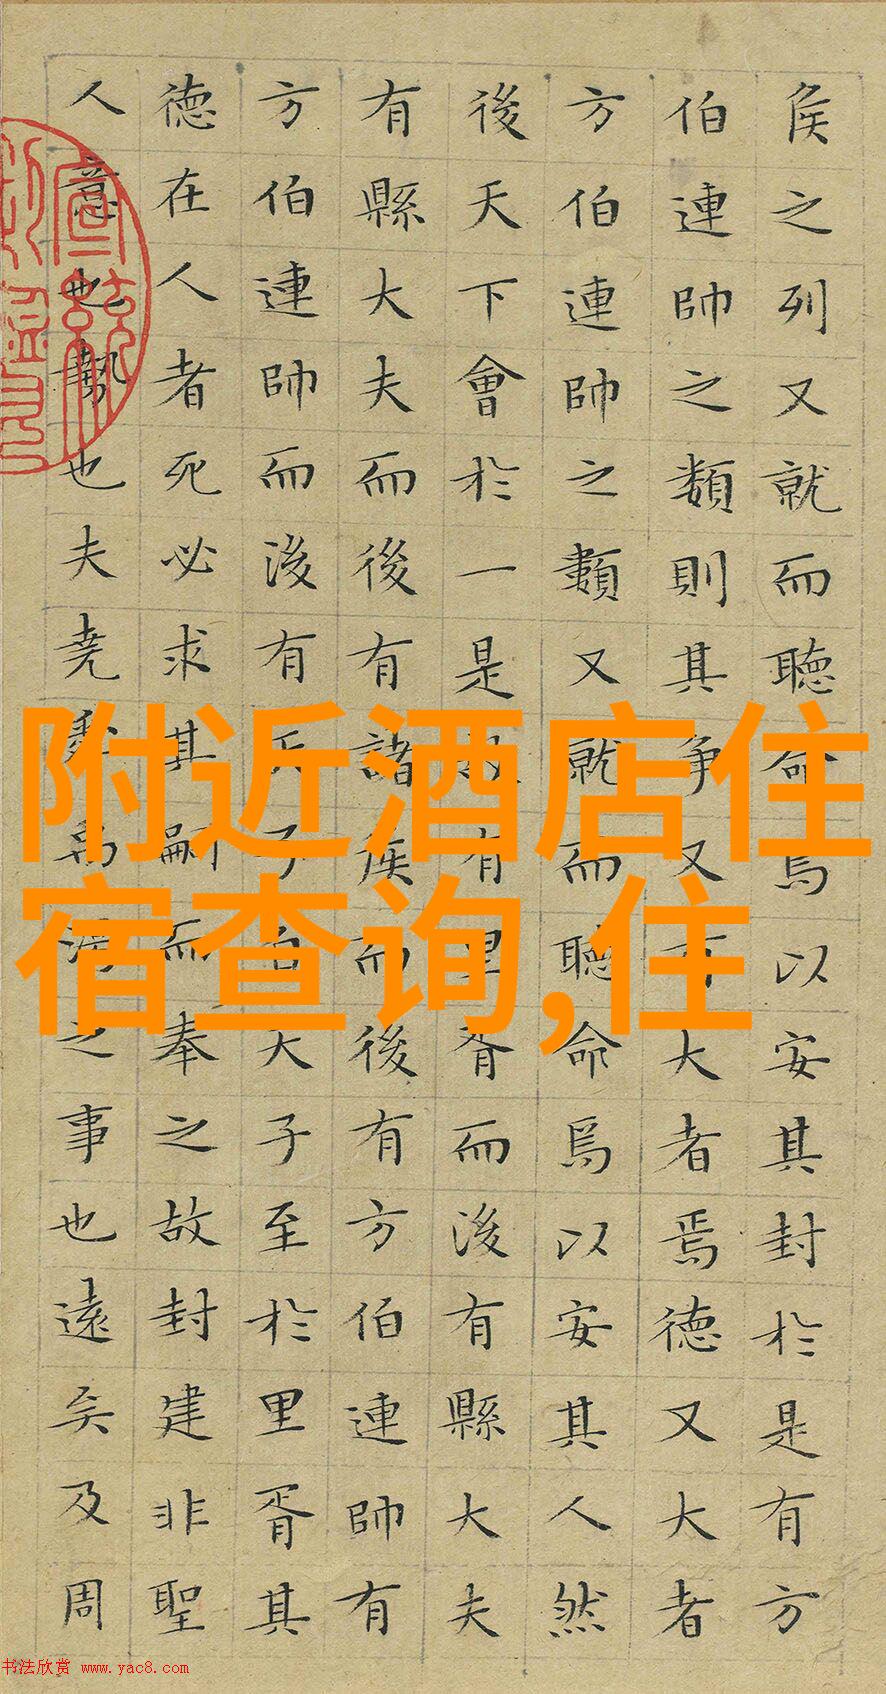 侯之列又就而聴命焉以安其封於是有方
伯連帥之類則其争又有大者焉德又大者
方伯連帥之類又就而聴命焉以安其人然
後天下會於一是故有里胥而後有縣大夫
有縣大夫而後有諸侯而後有方伯連帥有
方伯連帥而後有天子自天子至於里胥其
德在人者死必求其嗣而奉之故封建非聖
人意也勢也夫堯舜禹湯之事也遠矣及周
附近酒店住
宿查询,住
书法欣赏 www.yac8.com